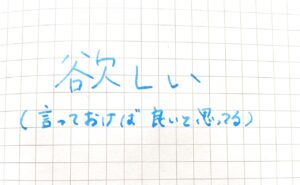 欲しい
(言っておけば良いと思ってる)